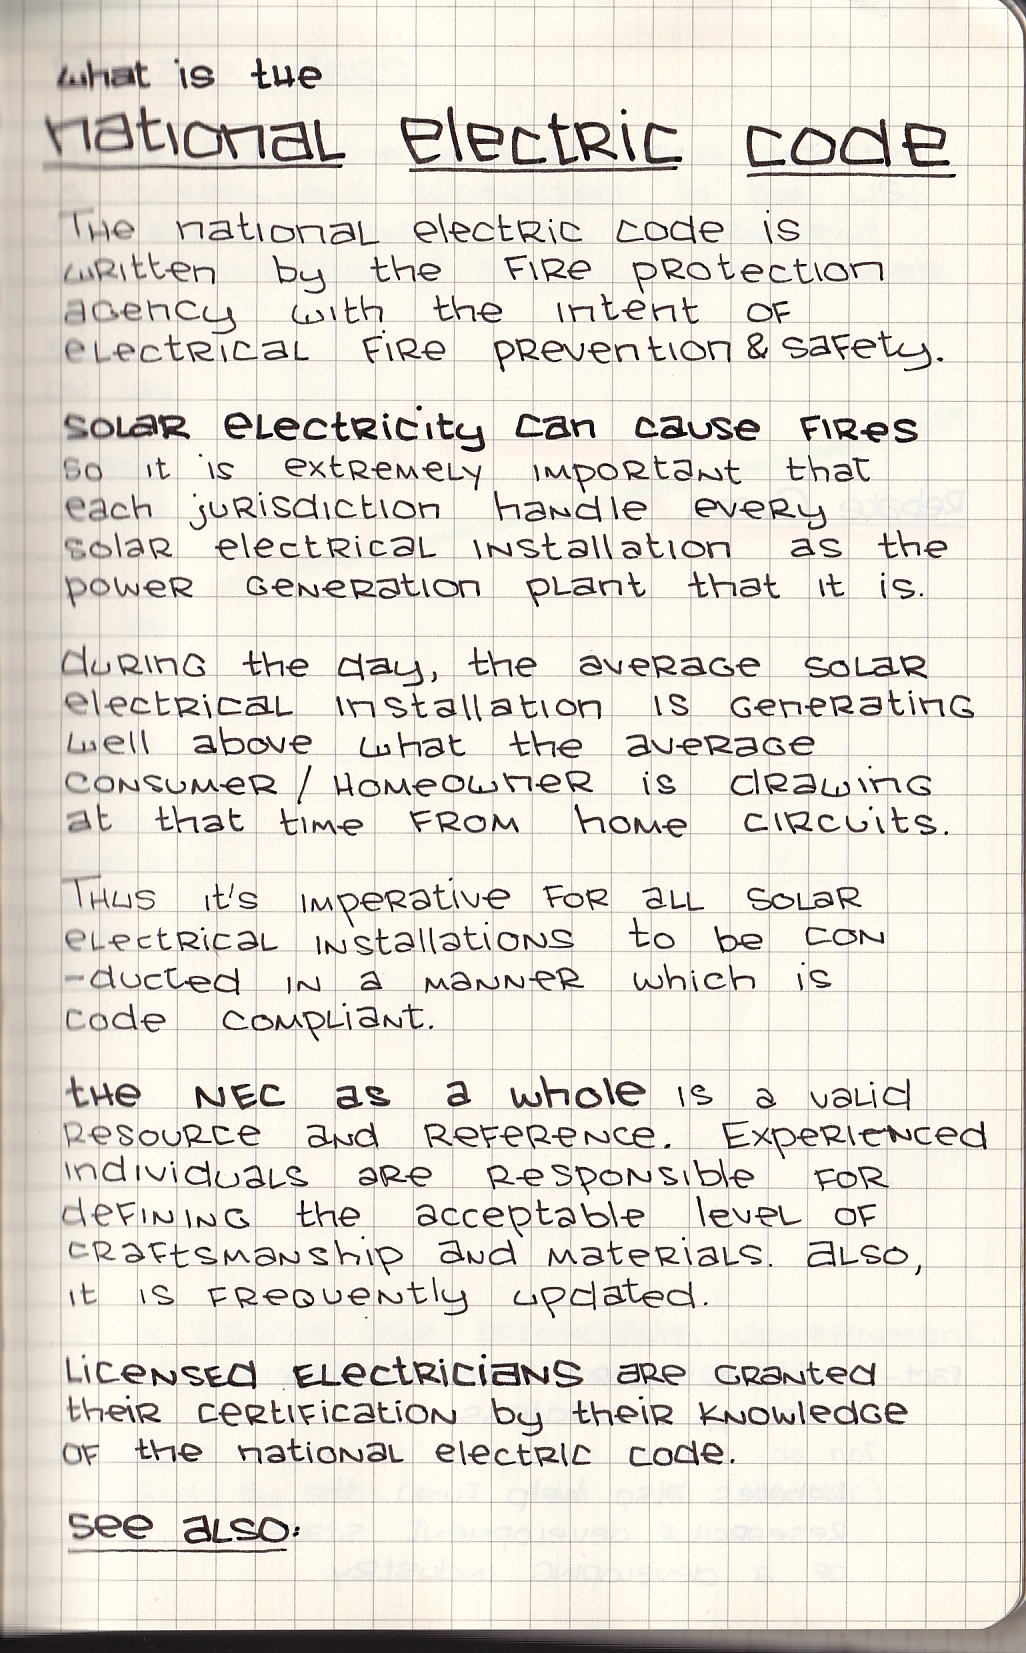 what is the
national electric code
The national electric code is
written by the Fire protection
agency with the intent of
electrical fire prevention & safety.
solar electricity can cause fires
so it is extremely important that
each jurisdiction handle every
solar electrical installation as the
power generation plant that it is.
during the day, the average solar
electrical installation is generating
well above what the average
consumer / homeowner is drawing
at that time from home circuits.
Thus it's imperative for all solar
electrical installations to be con
-ducted in a manner which is
code compliant.
the NEC as a whole is a valid
resource and reference. Experienced
individuals are responsible for
defining the acceptable level of
craftsmanship and materials. also,
it is frequently updated.
Licensed Electricians are granted
their certification by their knowledge
of the national electric code.
see also: